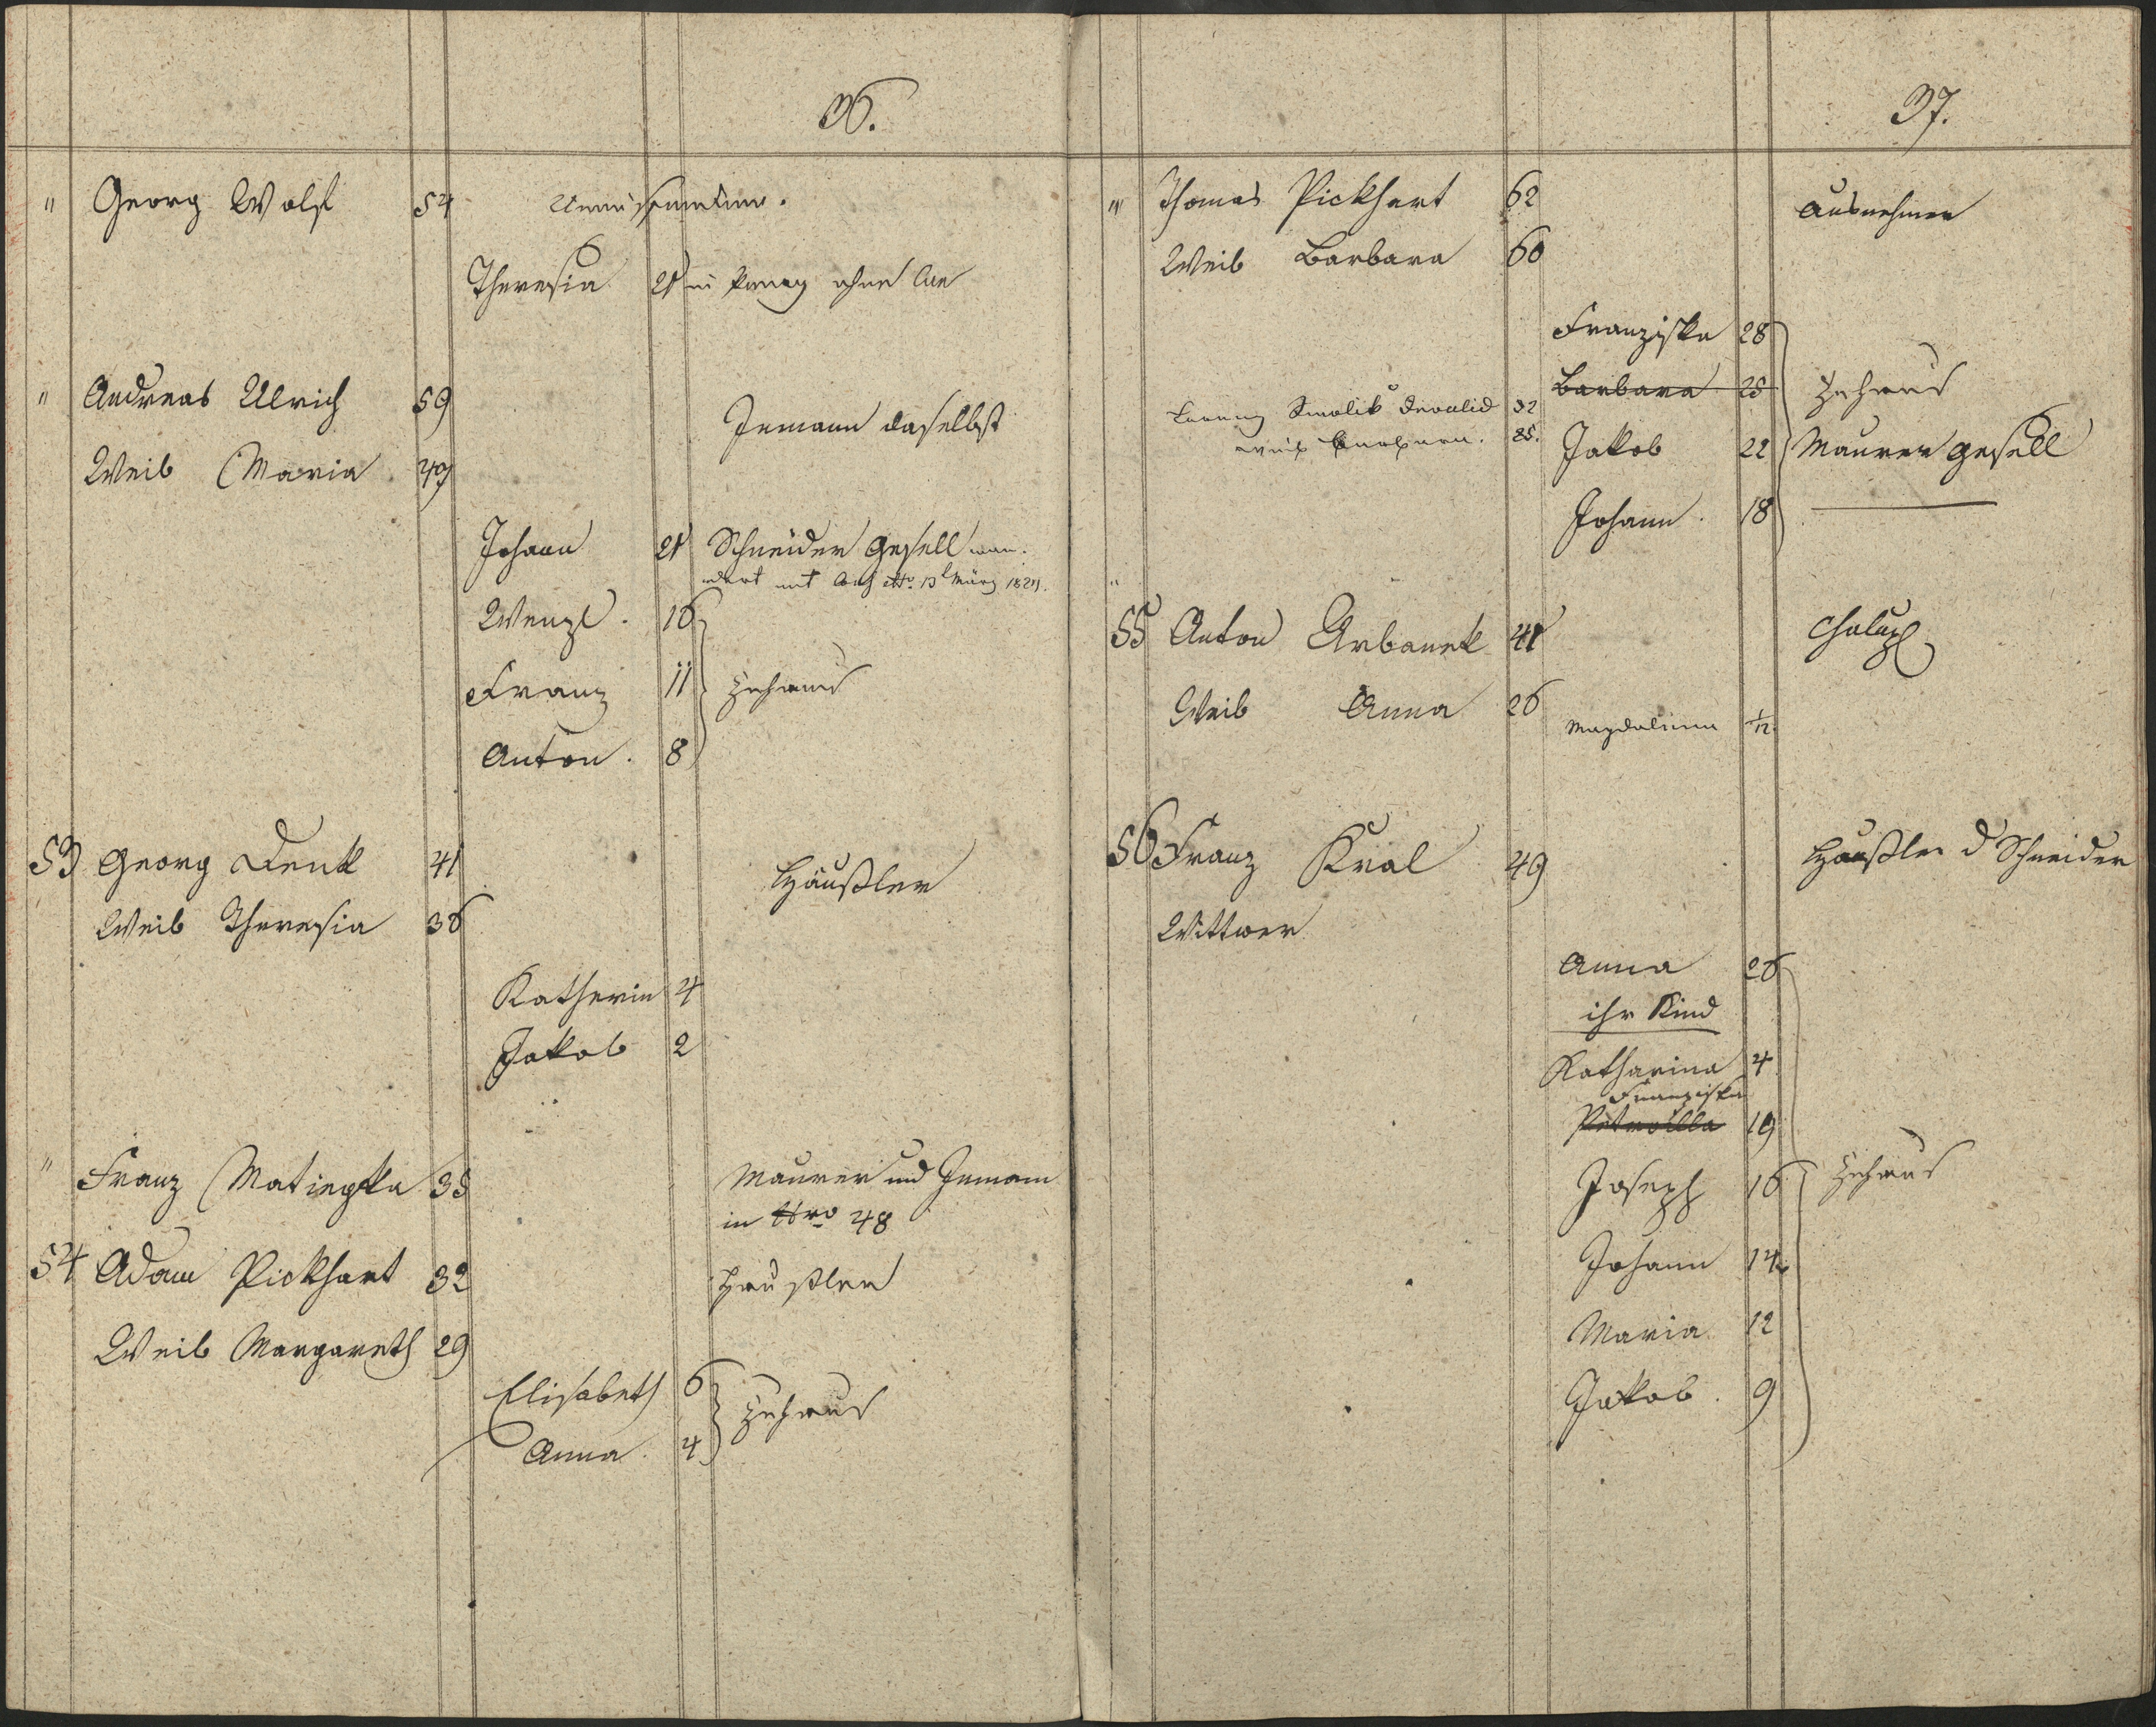 36.
" Georg Wolf 54
Theresia 21 in Prag ohne
" Andreas Ulrich 59
Inmann daselbst
Weib Maria 49
Johann 21 Schneider Gesell wan-
dert mit März
Wenzl. 16
Franz 11 Zuhaus
Anton. 8
53 Georg Denk 41
Häußler
Weib Theresia 36
Katherin 4
Jakob 2
" Franz Matiegka 35 Maurer und Inmann
in Nro 48
54 Adam Pickhart 32 Häußler
Weib Margareth 29
Elisabeth 6 Zuhaus
Anna. 4
37.
" Thomas Pickhart 62 Ausnehmer
Weib Barbara 60
Franziska 28
Barbara 25 Zuhaus
Smolik Invalid 32
Weib Barbara. 25.
Jakob 22 Maurer Gesell
Johann. 18
"
55 Anton Urbanek 41 Chalup
Weib Anna 26
Magdalena 1/12
56 Franz Kral 49 Häußler d Schneider
Wittwer
Anna 26
ihr Kind
Katharina 4
Franziska
Petronilla 19
Joseph 16 Zuhaus
Johann 14
Maria 12
Jakob. 9